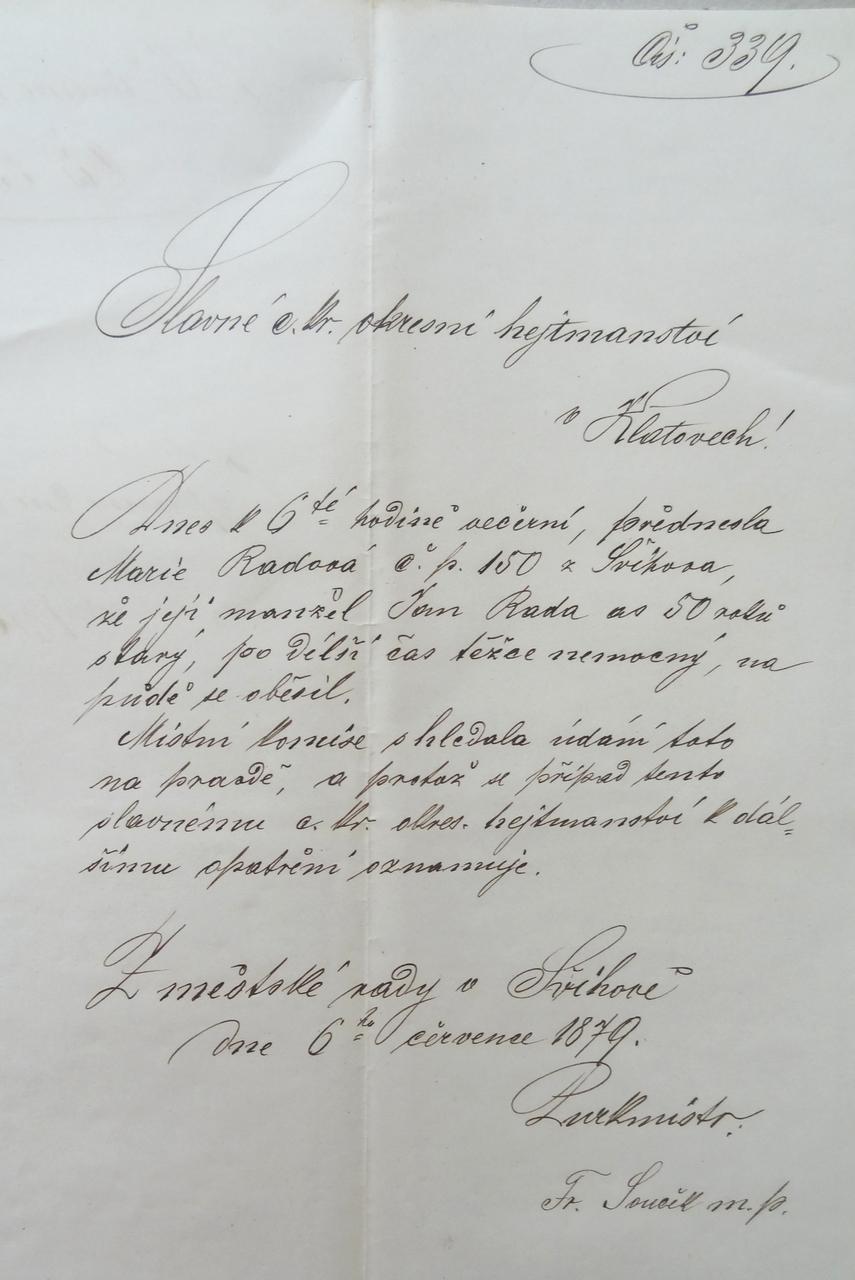 Čís: 339.
Slavné c. kr. okresní hejtmanství
v Klatovech!
Dnes k 6té hodině večerní, přednesla
Marie Radová č. p. 150 z Švihova,
že její manžel Jan Rada as 50 roků
starý, po delší čas těžce nemocný, na
půdě se oběsil.
Místní komise shledala údání toto
na pravdě, a protož se případ tento
slavnému c. kr. okres. hejtmanství k dál=
šímu opatření oznamuje.
Z městské rady v Švihově
dne 6ho července 1879.
Purkmistr.
Fr. Souček m. p.